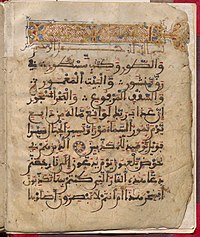 والطور وكتب مسطور في
رق منشور والبيت المعمور
والسقف المرفوع والبحر المسجور
ان عذاب ربك لواقع ما له من دافع
يوم تمور السماء مورا وتسير الجبال
سيرا فويل يومئذ للمكذبين الذين هم في
خوض يلعبون يوم يدعون الى نار
جهنم دعا هذه النار التي كنتم بها تكذبون
افسحر هذا ام انتم لا تبصرون اصلوها